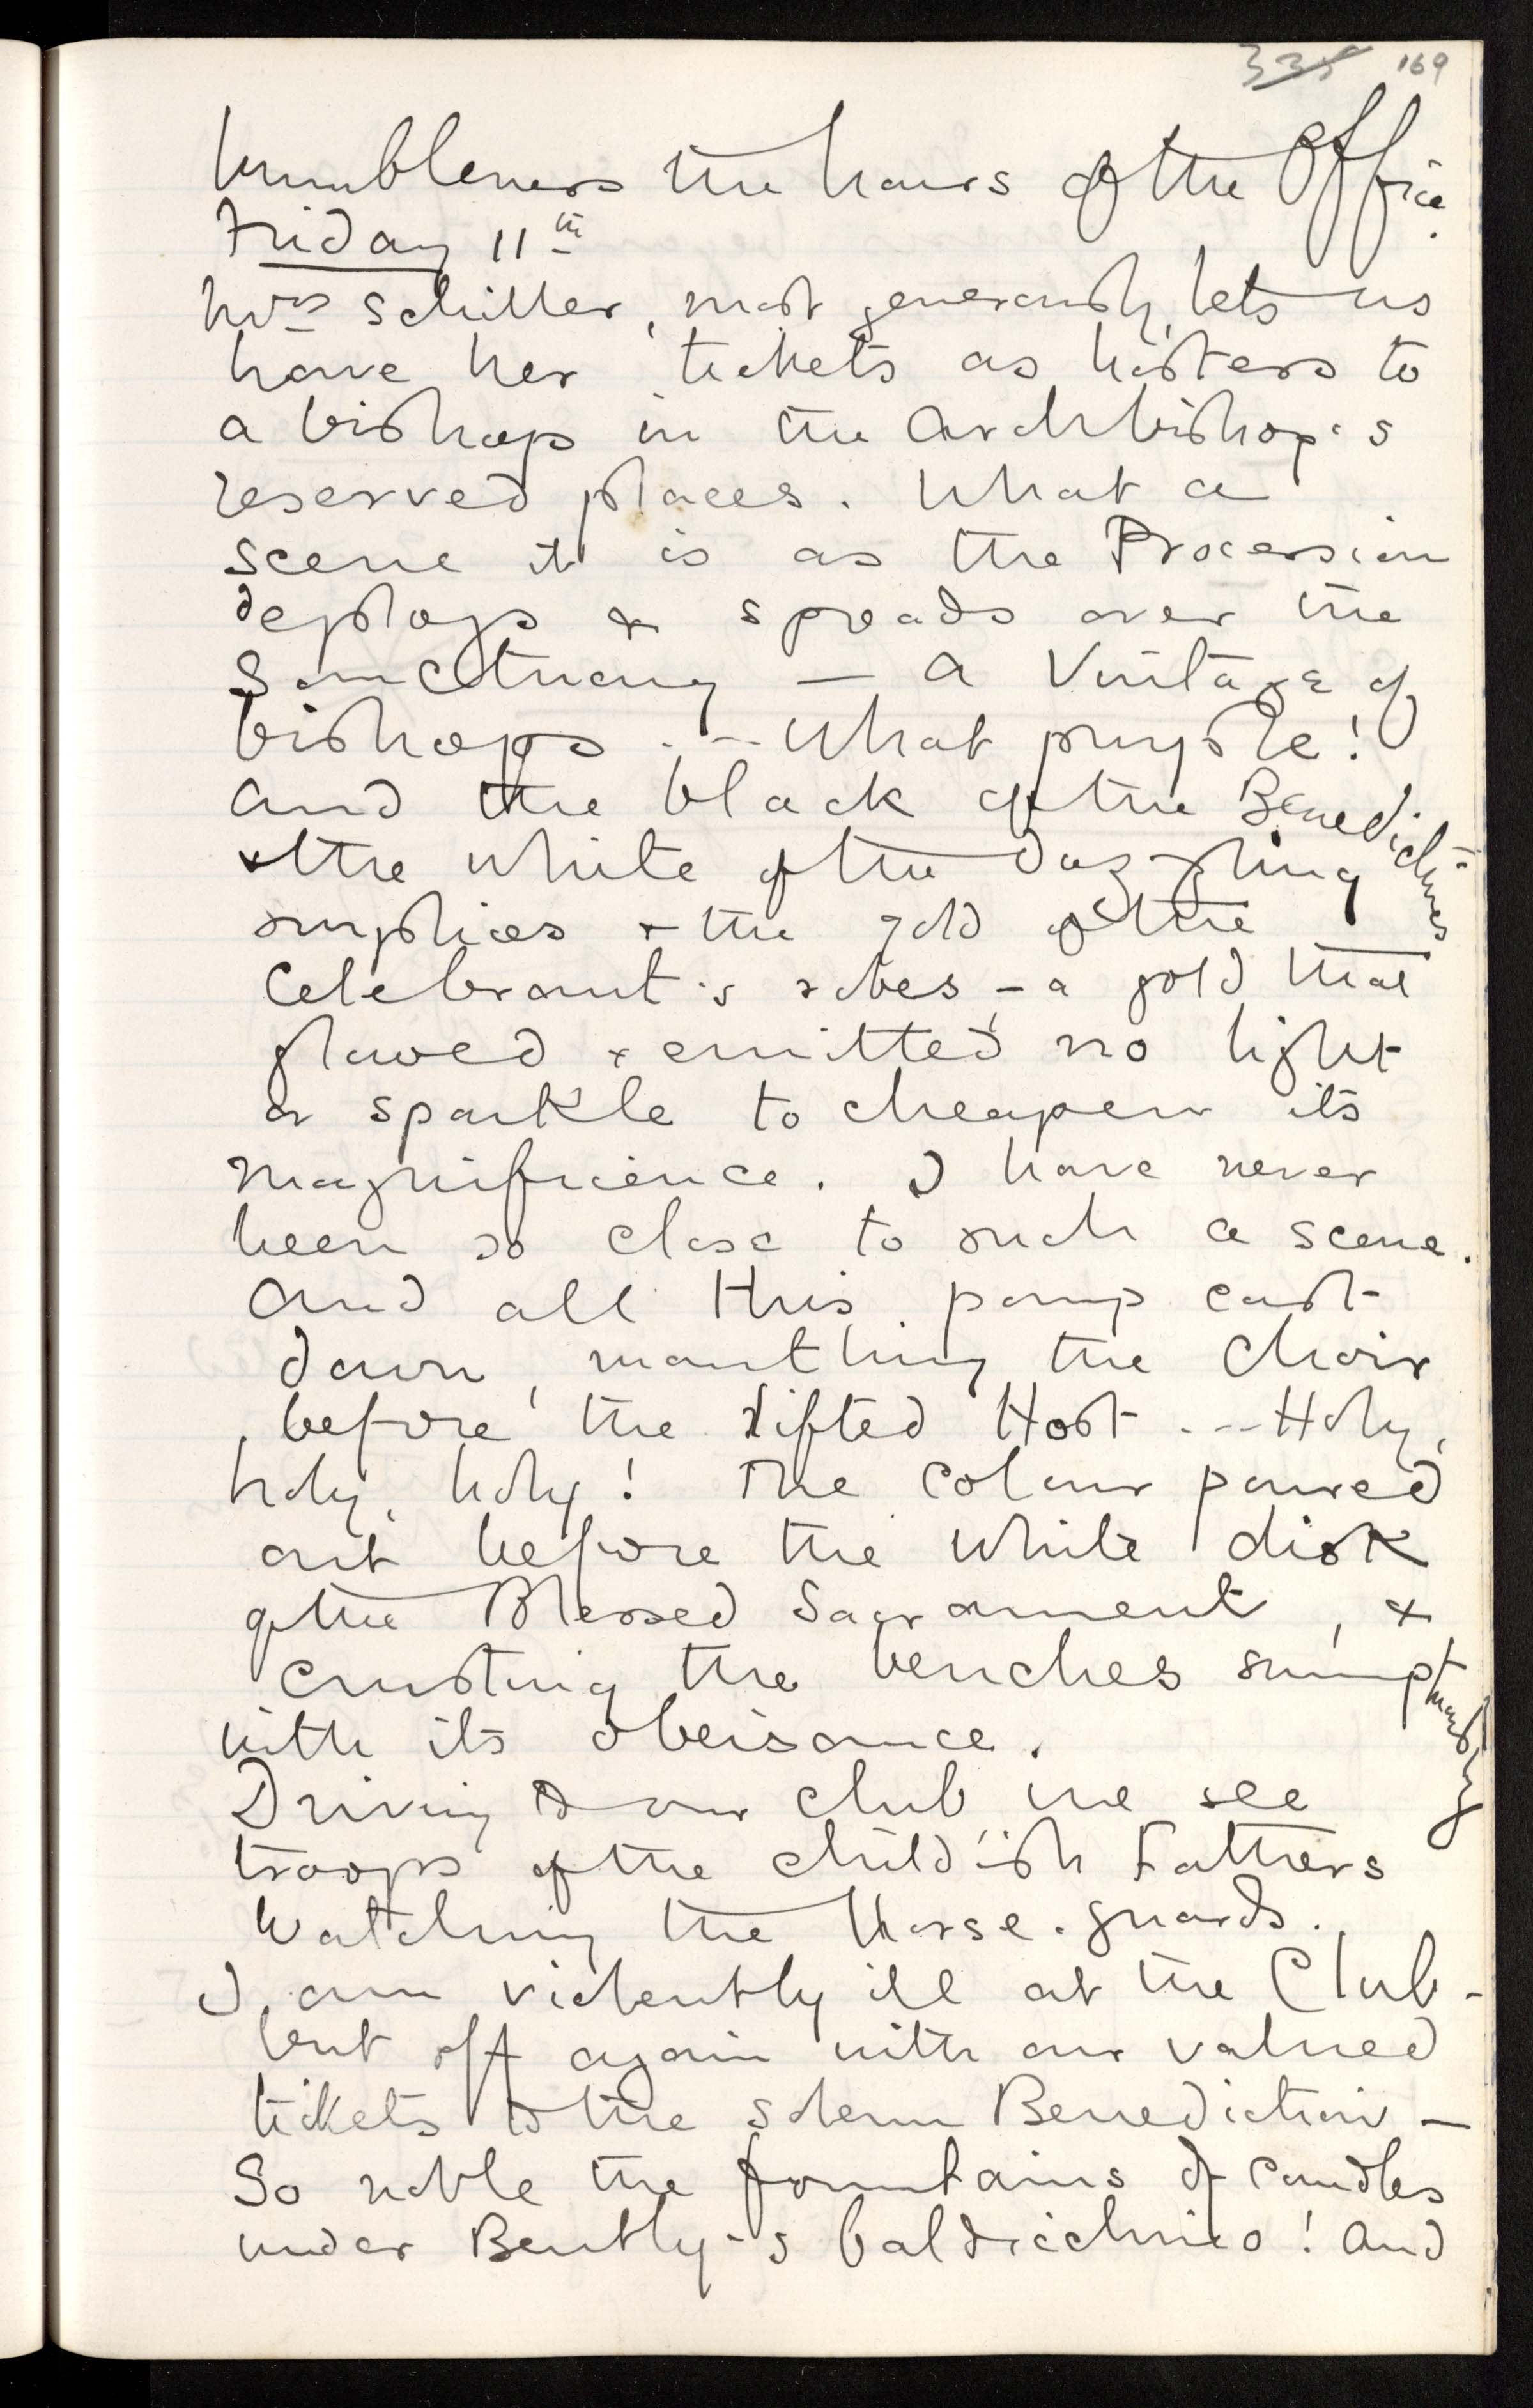 335 169
humbleness the hours of the Office.
Friday 11th
Mrs Schiller, most generously, lets us
have her tickets as hosters to
a bishop in the Archbishop's
reserved places. What a
scene it is as the Procession
deploys & spreads over the
Sanctuary — a Vintage of
bishops .-- What purple!
And the black of the Benedictines
& the white of the dazzling
surplices & the gold of the
Celebrant's robes, - a gold that
glowed & emitted no light
or sparkle to cheapen its
magnificence. I have never
been so close to such a scene.
And all this pomp cast
down, mantling the Choir
before the lifted Host .-- Holy,
holy, holy! The Colour poured
out before the white disk
of the Blessed Sacrament, &
crusting the benches sumptuously
with its obeisance.
Driving to our club we see
troops of the childish Fathers
watching the Horse-guards.
I am violently ill at the Club -
but off again with our valued
tickets to the solemn Benediction —
So noble the fountains of candles
under Bently's baldicchino! And